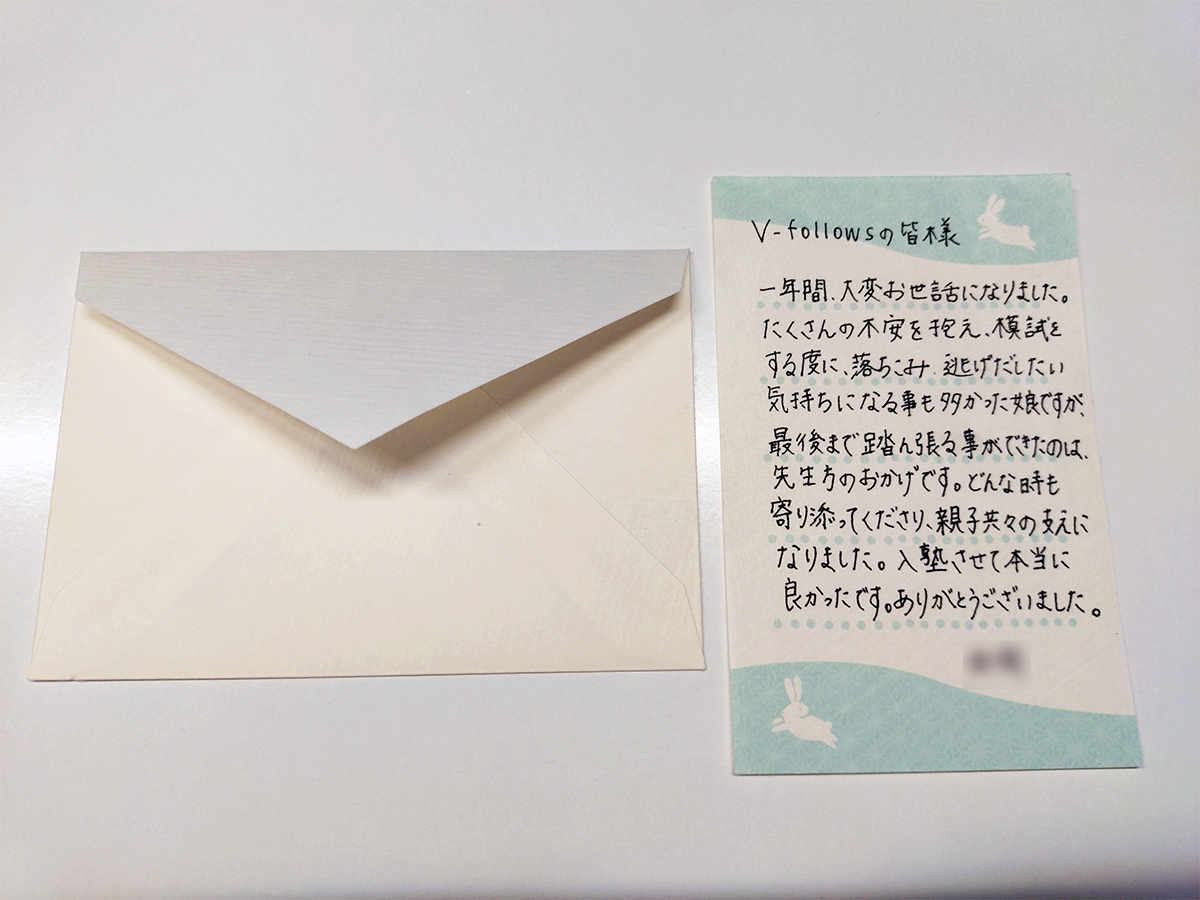 V-followsの皆様
一年間、大変お世話になりました。
たくさんの不安を抱え、模試を
する度に、落ちこみ、逃げだしたい
気持ちになる事も多かった娘ですが、
最後まで踏ん張る事ができたのは、
先生方のおかげです。どんな時も
寄り添ってくださり、親子共々の支えに
なりました。入塾させて本当に
良かったです。ありがとうございました。